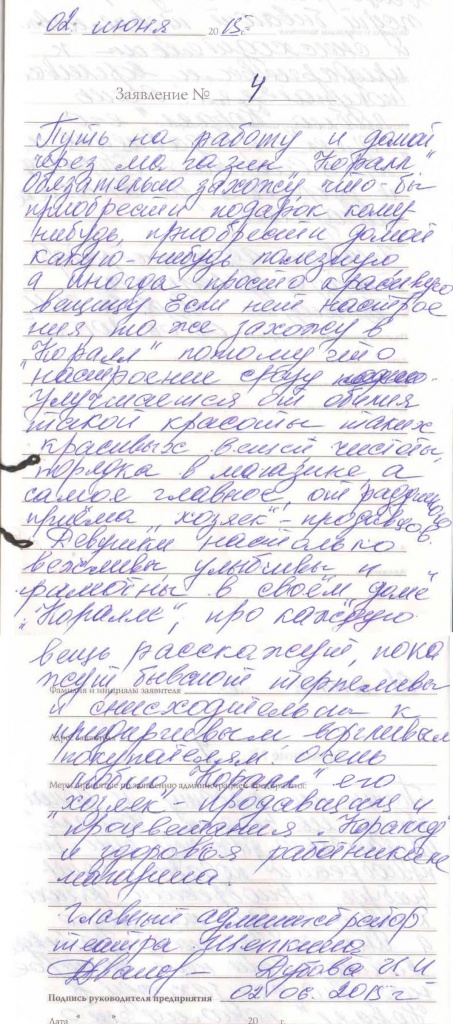 02. июня 2015 г.
Заявление № 4
Путь на работу и домой
через магазин "Коралл"
Обязательно захожу что-бы
приобрести подарок кому
нибудь, приобрести домой
какую-нибудь полезную
а иногда просто красивую
вещицу Если нет настрое
ния, то же захожу в
"Коралл" потому что
настроение сразу
улучшается от обилия
такой красоты таких
красивых вещей чистоты,
порядка в магазине а
самое главное, от радушного
приёма "хозяек" - продавцов.
Девушки настолько
вежливы улыбчивы и
грамотны в своём "доме"
"Коралле", про каждую
вещь расскажут, пока
жут бывают терпеливы
Фамилия и инициалы заявителя
и снисходительны к
придирчивым ворчливым
покупателям. Очень
люблю "Коралл" его
"хозяек" - продавщиц и
процветания "Кораллу"
и здоровья работникам
магазина.
Главный администратор
театра Щепкина
Дурова И. И
02 06. 2015 г
Подпись руководителя предприятия
Дата " " 20 г.